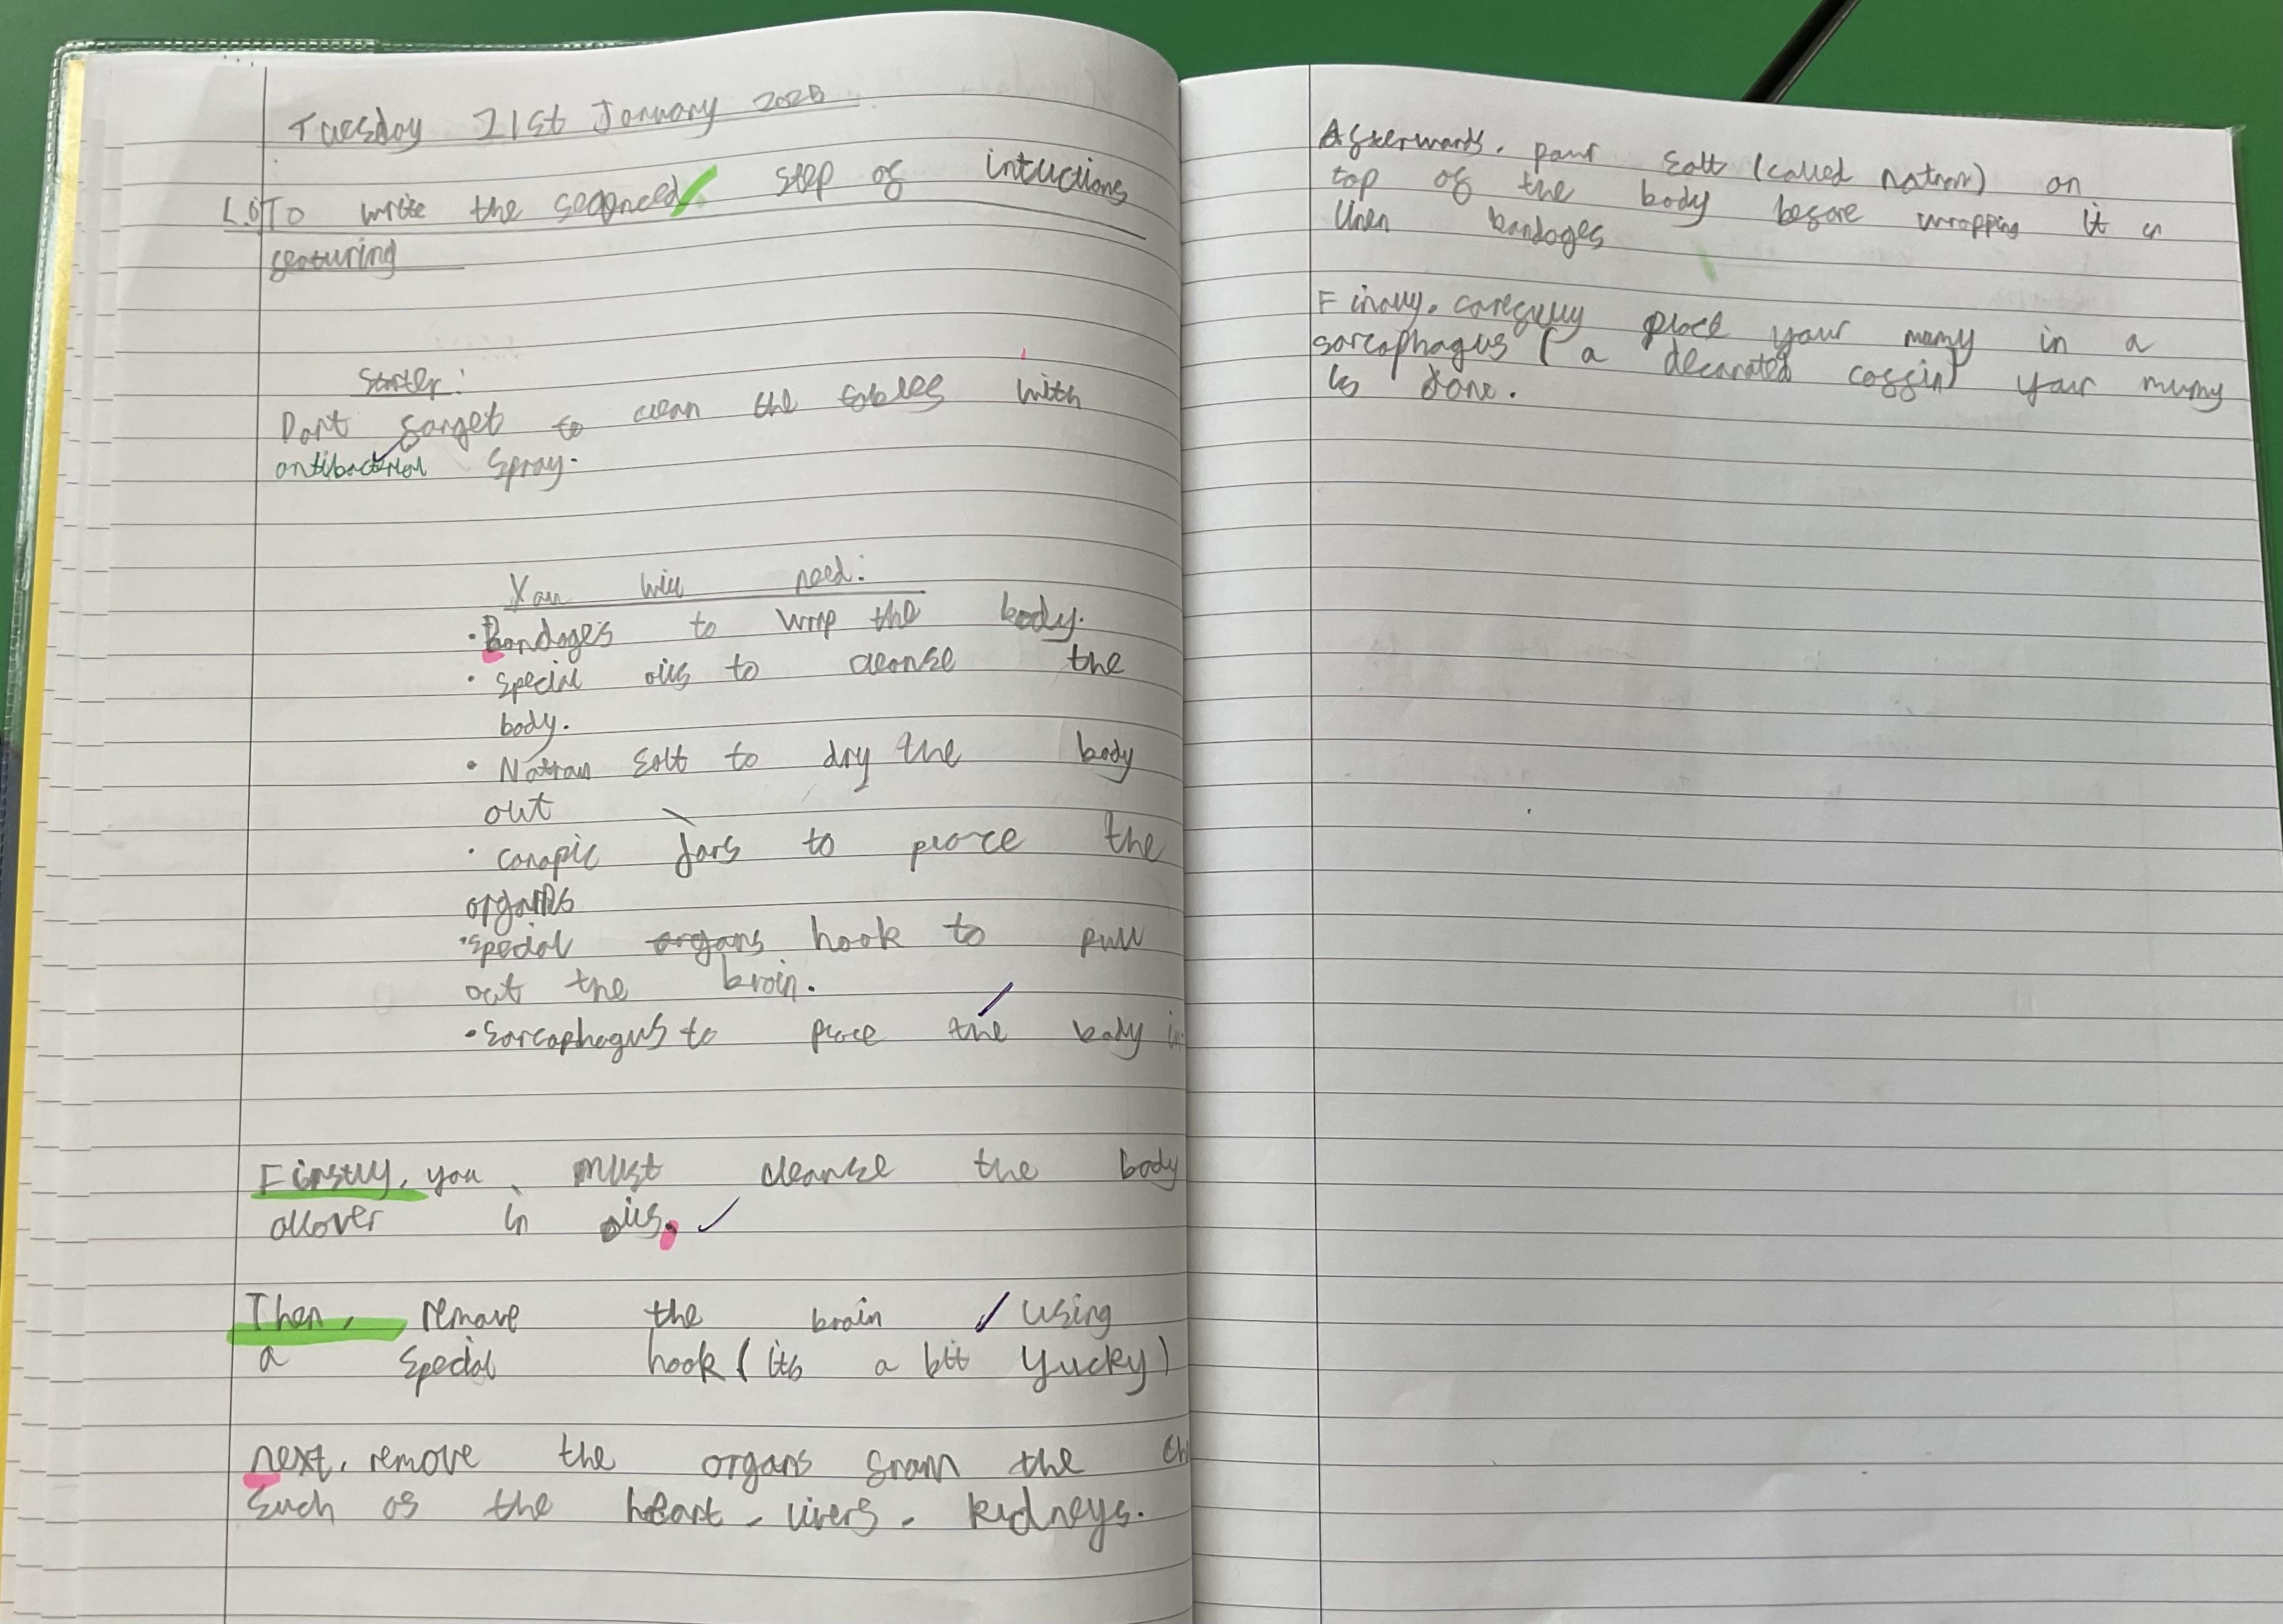 Tuesday 21st January 2025
L.O To write the seqenced step of intuctions
featuring
Starter:
Dont forget to clean the tables with
antibacterial spray.
You will need:
• Bandages to wrap the body.
• special oils to cleanse the
body.
• Natron salt to dry the body
out
• canopic jars to place the
organs
• special organs hook to pull
out the brain.
• Sarcophagus to place the body in.
Firstly, you must cleanse the body
allover in oils.
Then, remove the brain using
a special hook (its a bit yucky)
next, remove the organs from the
such as the heart, livers, kidneys.
Afterwards, pour salt (called natron) on
top of the body before wrapping it in
linen bandages
Finally, carefully place your mumy in a
sarcophagus (a decarated coffin) your mumy
is done.